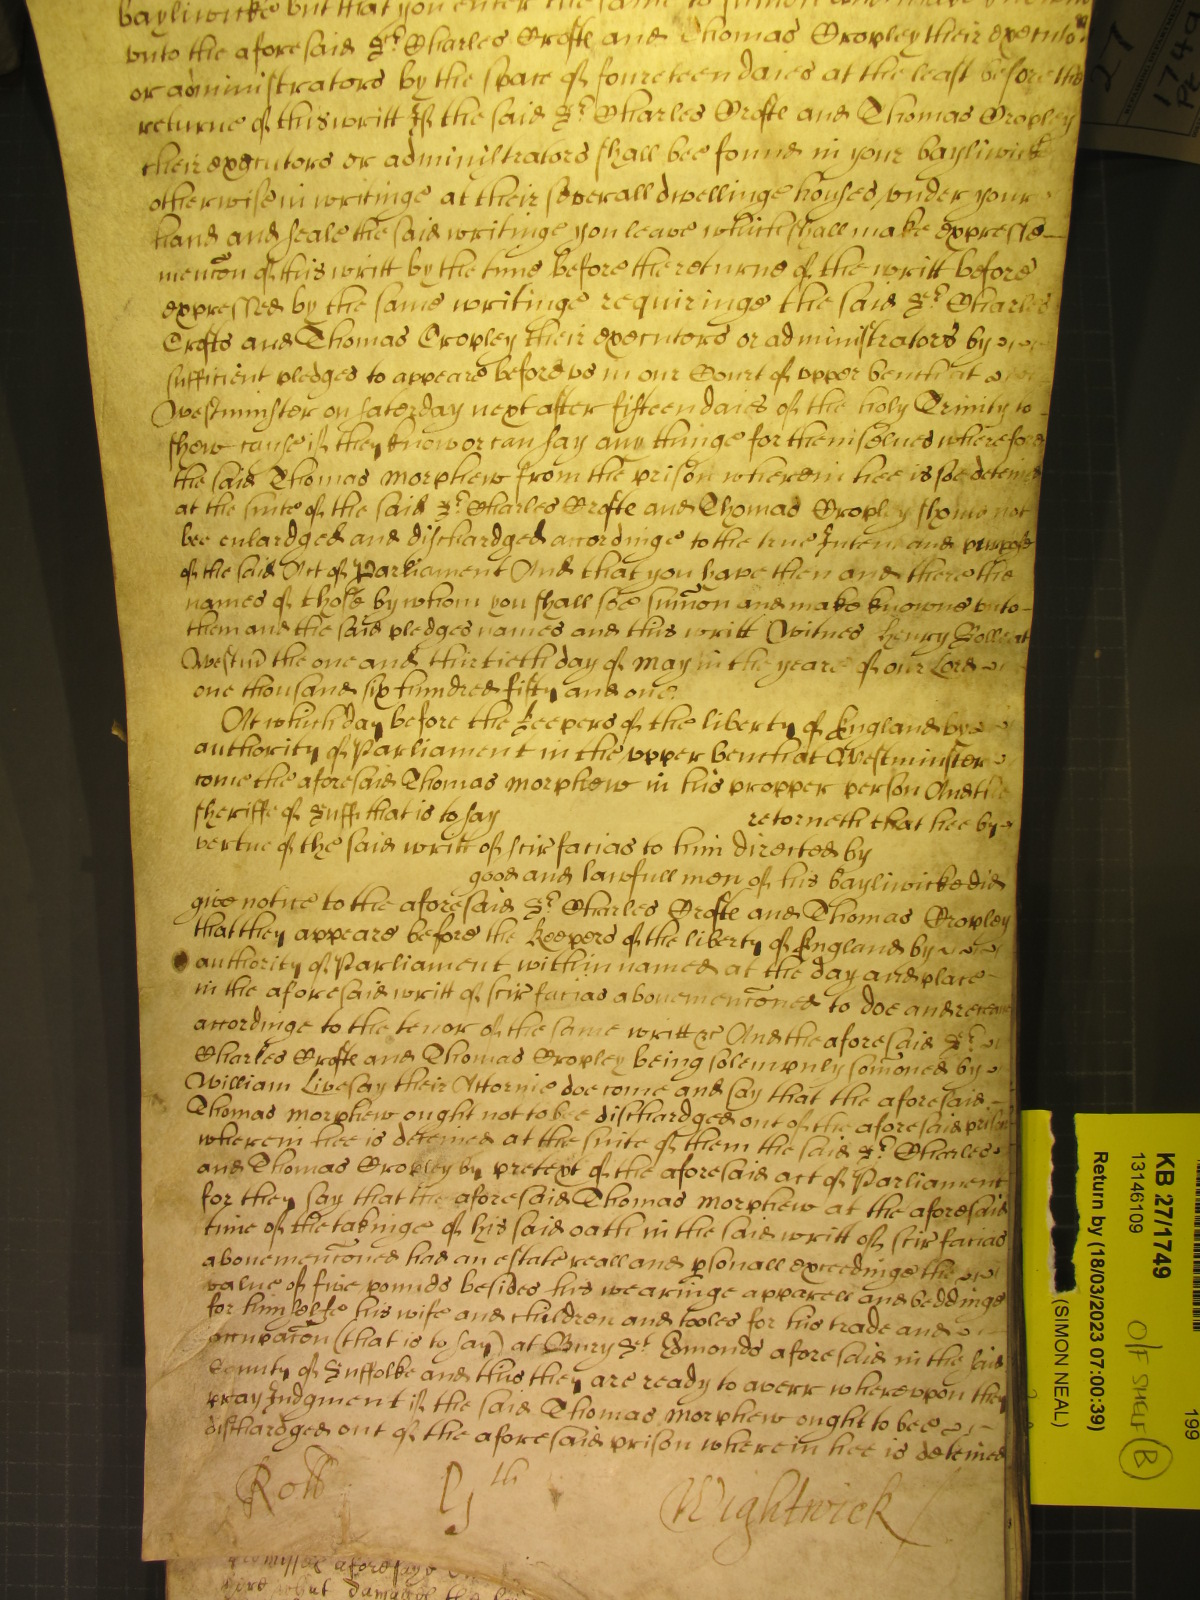 bayliwicke but that you enter the same to sumon and make knowne
vnto the aforesaid Sr. Charles Crofte and Thomas Cropley their executors
or administrators by the space of foureteen daies at the least before the
returne of this writt If the said Sr. Charles Crofte and Thomas Cropley
their executors or administrators shall bee found in your bayliwick
otherwise in writinge at their severall dwellinge houses vnder your
hand and seale the said writinge you leave which shall make expresse
menc̃on of this writt by the time before the returne of the writt before
expressed by the same writinge requiringe the said Sr. Charles
Crofts and Thomas Cropley their executors or administrators by
sufficient pledges to appeare before vs in our Court of vpper bench at
Westminster on saterday next after fifteen daies of the holy Trinity to
shew cause if they know or can say any thinge for themselues wherefore
the said Thomas Morphew from the prison wherein hee is soe deteined
at the suite of the said Sr. Charles Crofte and Thomas Cropley should not
bee enlardged and dischardged accordinge to the true Intent and purpose
of the said Act of Parliament And that you have then and there the
names of those by whom you shall soe sum̃on and make knowne vnto
them and the said pledges names and this writt Witnes Henry Rolle at
Westm̃ the one and thirtieth day of May in the yeare of our Lord
one thousand six hundred fifty and one.
At which day before the Keepers of the liberty of England by
authority of Parliament in the vpper bench at Westminster
come the aforesaid Thomas Morphew in his propper person And the
sheriffe of Suff. that is to say retorneth that hee by
vertue of the said writt of scire facias to him directed by
good and lawfull men of his bayliwicke did
give notice to the aforesaid Sr. Charles Crofte and Thomas Cropley
that they appeare before the Keepers of the liberty of England by
authority of Parliament within named at the day and place
in the aforesaid writt of scire facias abovemenc̃oned to doe and receave
accordinge to the tenor of the same writt &c And the aforesaid Sr.
Charles Crofte and Thomas Cropley being solempnly som̃oned by
William Livesay their Attornie doe come and say that the aforesaid
Thomas Morphew ought not to bee dischardged out of the aforesaid prison
wherein hee is deteined at the suite of them the said Sr. Charles
and Thomas Cropley by pretext of the aforesaid act of Parliament
for they say that the aforesaid Thomas Morphew at the aforesaid
time of the takinge of his said oath in the said writt of scire facias
abovemenc̃oned had an estate reall and p̱sonall exceedinge the
value of five pounds besides his wearinge apparell and beddinge
for himselfe his wife and children and tooles for his trade and
occupac̃on (that is to say) at Bury St. Edmonds aforesaid in the said
county of Suffolke and this they are ready to averr wherevpon they
pray Judgment if the said Thomas Morphew ought to bee
dischardged out of the aforesaid prison wherein hee is deteined
Roll Wightwick
aforesayd
damages the
27
1749
KB 27/1749
13146109
Return by (18/03/2023 07:00:39)
(SIMON NEAL)
O/F SHELF B
199